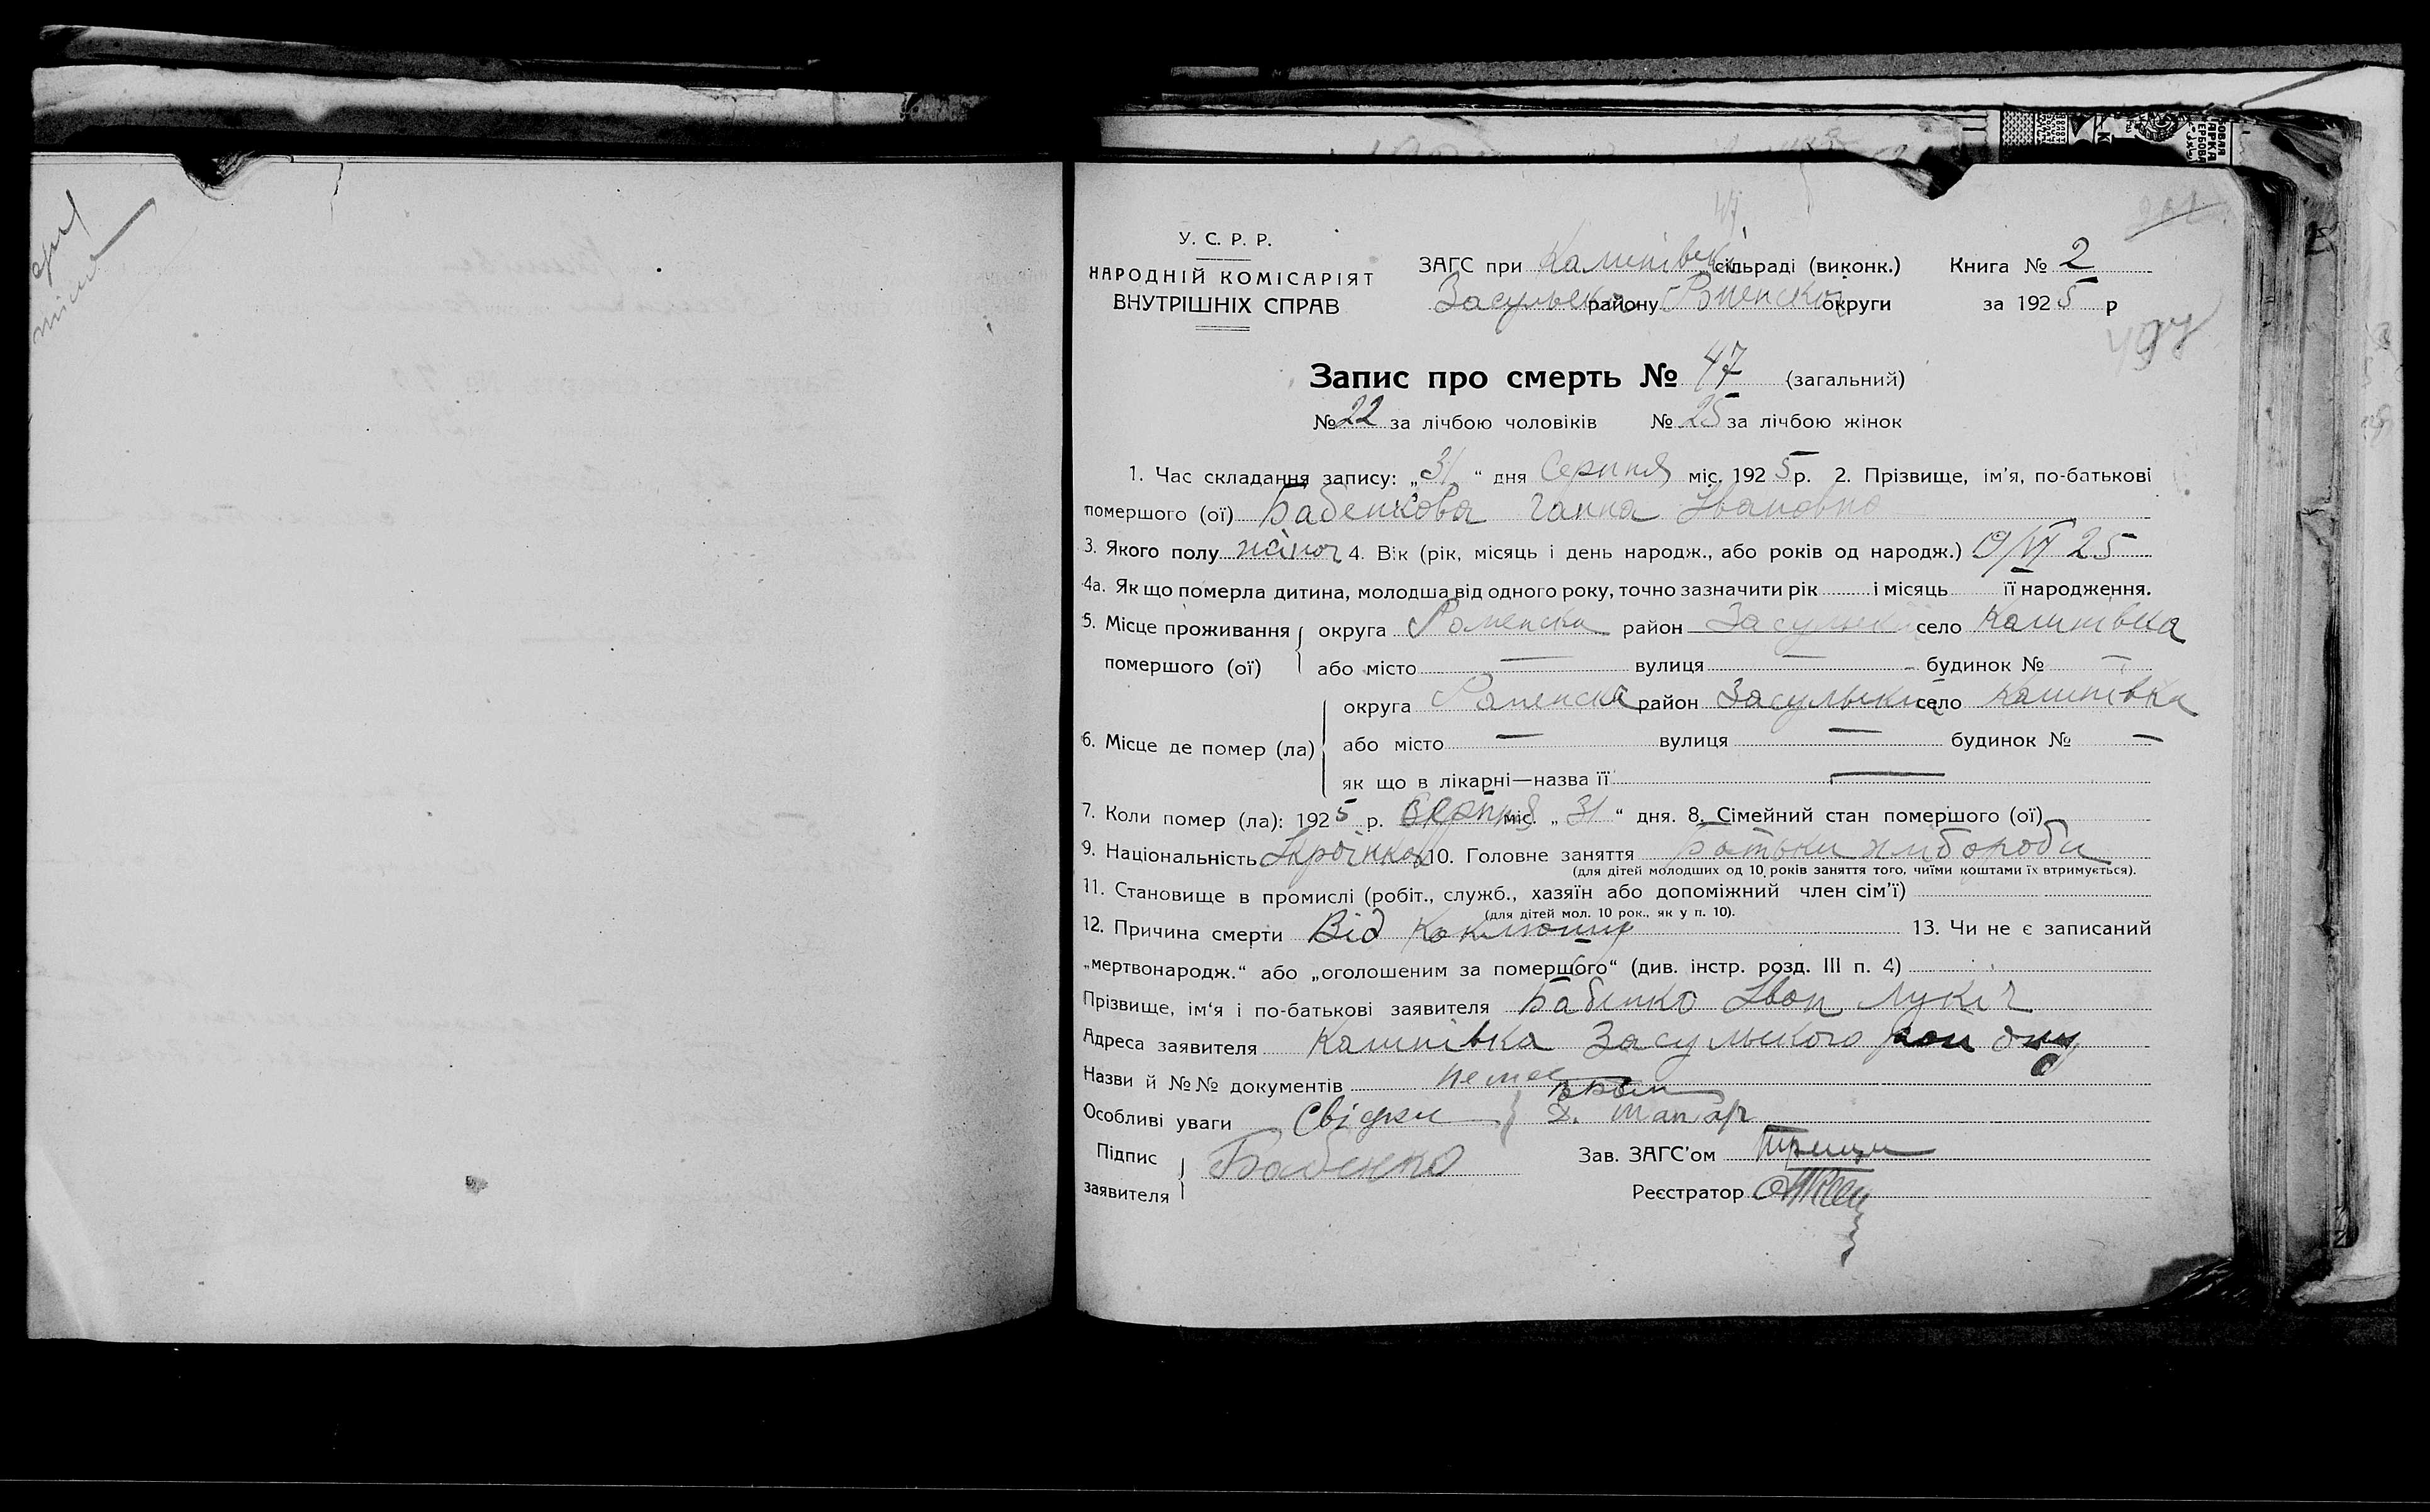 У. С. Р. Р.
НАРОДНІЙ КОМІСАРІЯТ
ВНУТРІШНІХ СПРАВ
47
ЗАГС при сільраді (виконк.) Книга № 2
району Роменской округи за 1925 р
497
Запис про смерть № 47 (загальний)
№ 22 за лічбою чоловіків № 25 за лічбою жінок
1. Час складання запису: „31“ дня Серпня міс. 1925 р. 2. Прізвище, ім'я, по-батькові
помершого (ої) Бабенкова Ганна Івановна
3. Якого полу жіноч 4. Вік (рік, місяць і день народж., або років од народж.) 19/VI 25
4а. Як що померла дитина, молодша від одного року, точно зазначити рік і місяць її народження.
5. Місце проживання округа Роменска район Засульский село
помершого (ої) або місто — вулиця — будинок № —
округа Роменска район Засульский село
6. Місце де помер (ла) або місто — вулиця — будинок № —
як що в лікарні—назва її —
7. Коли помер (ла): 1925 р. Серпня міс. „31“ дня. 8. Сімейний стан помершого (ої)
9. Національність 10. Головне заняття батьки хлібороби
(для дітей молодших од 10 років заняття того, чиїми коштами їх втримується).
11. Становище в промислі (робіт., служб., хазяїн або допоміжний член сім'ї)
(для дітей мол. 10 рок., як у п. 10).
12. Причина смерти Від Коклюшу 13. Чи не є записаний
„мертвонародж.“ або „оголошеним за помершого“ (див. інстр. розд. III п. 4)
Прізвище, ім'я і по-батькові заявителя Бабенко Іван Лукіч
Адреса заявителя Засульского
Назви й №№ документів немає
Особливі уваги Свідки
Підпис
заявителя Бабенко
Зав. ЗАГС'ом
Реєстратор